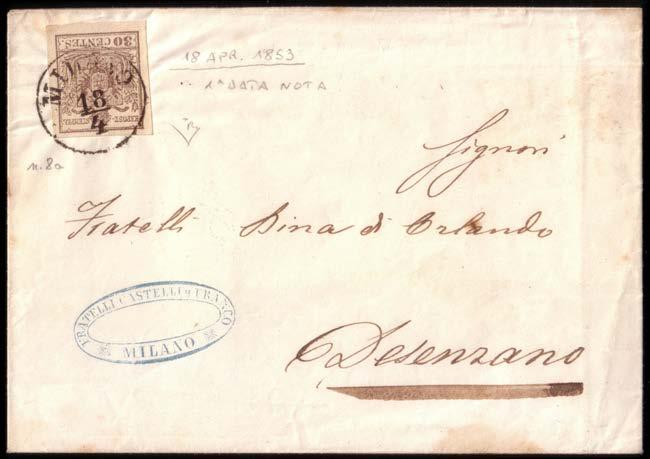 30 CENTES.
MILANO
18
4
18 APR. 1853
1ª DATA NOTA
n. 8a
Signori
Fratelli Bina di Orlando
FRATELLI CASTELLI FRANCO
MILANO
Desenzano